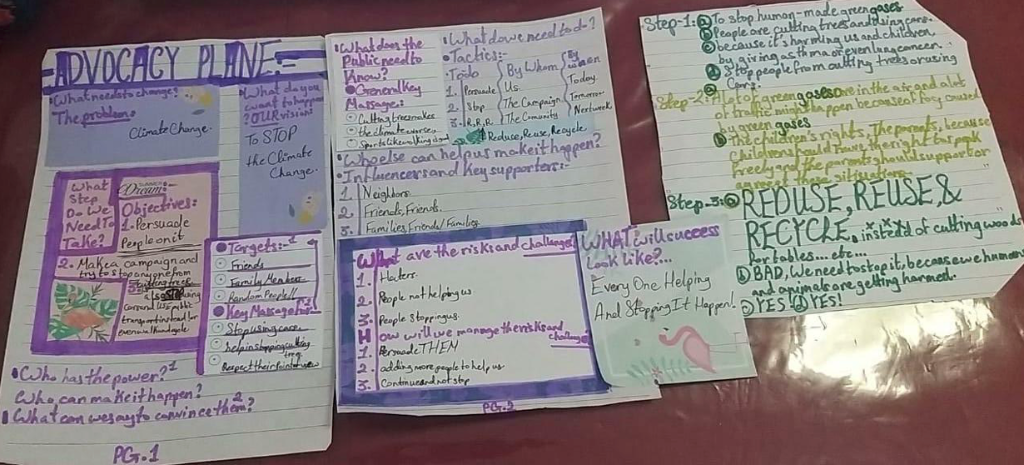 ADVOCACY PLANE:-
•What needs to change?
The problem:
Climate Change.
•What do you
want to happen
? OUR vision:
To STOP
the Climate
Change.
What
Step
Do We
Need To
Take?
Dream:-
Objectives:
1.-Persuade
People on it
2. Make a campaign and
try to stop anyone from
cutting trees
•Targets:-1
Friends
Family Members
Random People//
•Key Massages:-
Stop using cars
help in stopping cutting
trees
•Who has the power?1
Who can make it happen?
•What can we say to convince them?2
PG.1
•What does the
Public need to
Know?
•General Key
Massage:
Cutting trees make
the climate worse
•What do we need to do?
•Tactics:-
To do
By Whom
By when
1. Persuade
Us.
Today.
2. Stop
The Campaign
Tomorrow
3. R.R.R
The Comunity
Next week
Reduse, Reuse, Recycle
•Who else can help us make it happen?
Influencers and Key supporters:-
1. Neighbors.
2. Friends, Friends.
3. Families, Friends/Families.
What are the risks and challenges?
1. Haters.
2. People not helping us
3. People stopping us.
How will we manage the risks and
challenges?
1. Persuade THEM
2. adding more people to help us
3. Continue and not stop
PG.2
WHAT will success
look like?...
Every One Helping
And Stopping It Happen!
Step-1: a To stop human-made green gases
b People are cutting trees and using cars.
c because it is harming us and children
by giving asthma or even lung cancer.
d Stop people from cutting trees or using
Cars.
Step-2: a A lot of green gases are in the air and a lot
of traffic might happen because of fog caused
by green gases
b The children's rights, The parents, because
children should have the right to park
freely and the parents should support or
agree to these situations.
Step-3: a REDUSE, REUSE, &
RECYCLE.. instead of cutting woods
for tables... etc...
b BAD, We need to stop it, because we humans
and animals are getting harmed.
c YES! d YES!